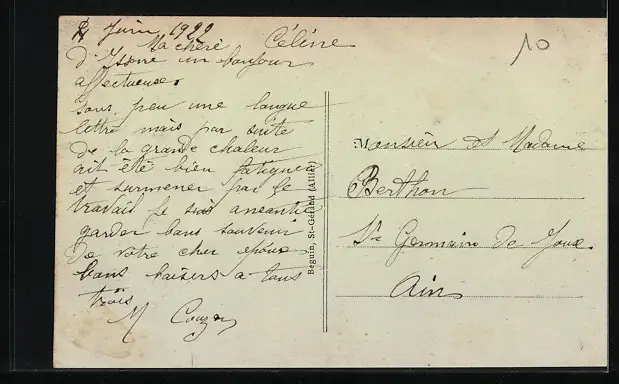 2 Juin 1922
Ma chère Céline
d' un bonjour
affectueuse
sous peu une longue
lettre mais par suite
de la grande chaleur
ait été bien fatiguée
et surmener par le
travail je suis aneantie
garder bons souvenir
de votre cher époux
bons baisers a tous
trois
M
10
Beguin, St-Gérand (Allier)
Monsieur et Madame
Berthon
St Germain de Joux
Ain